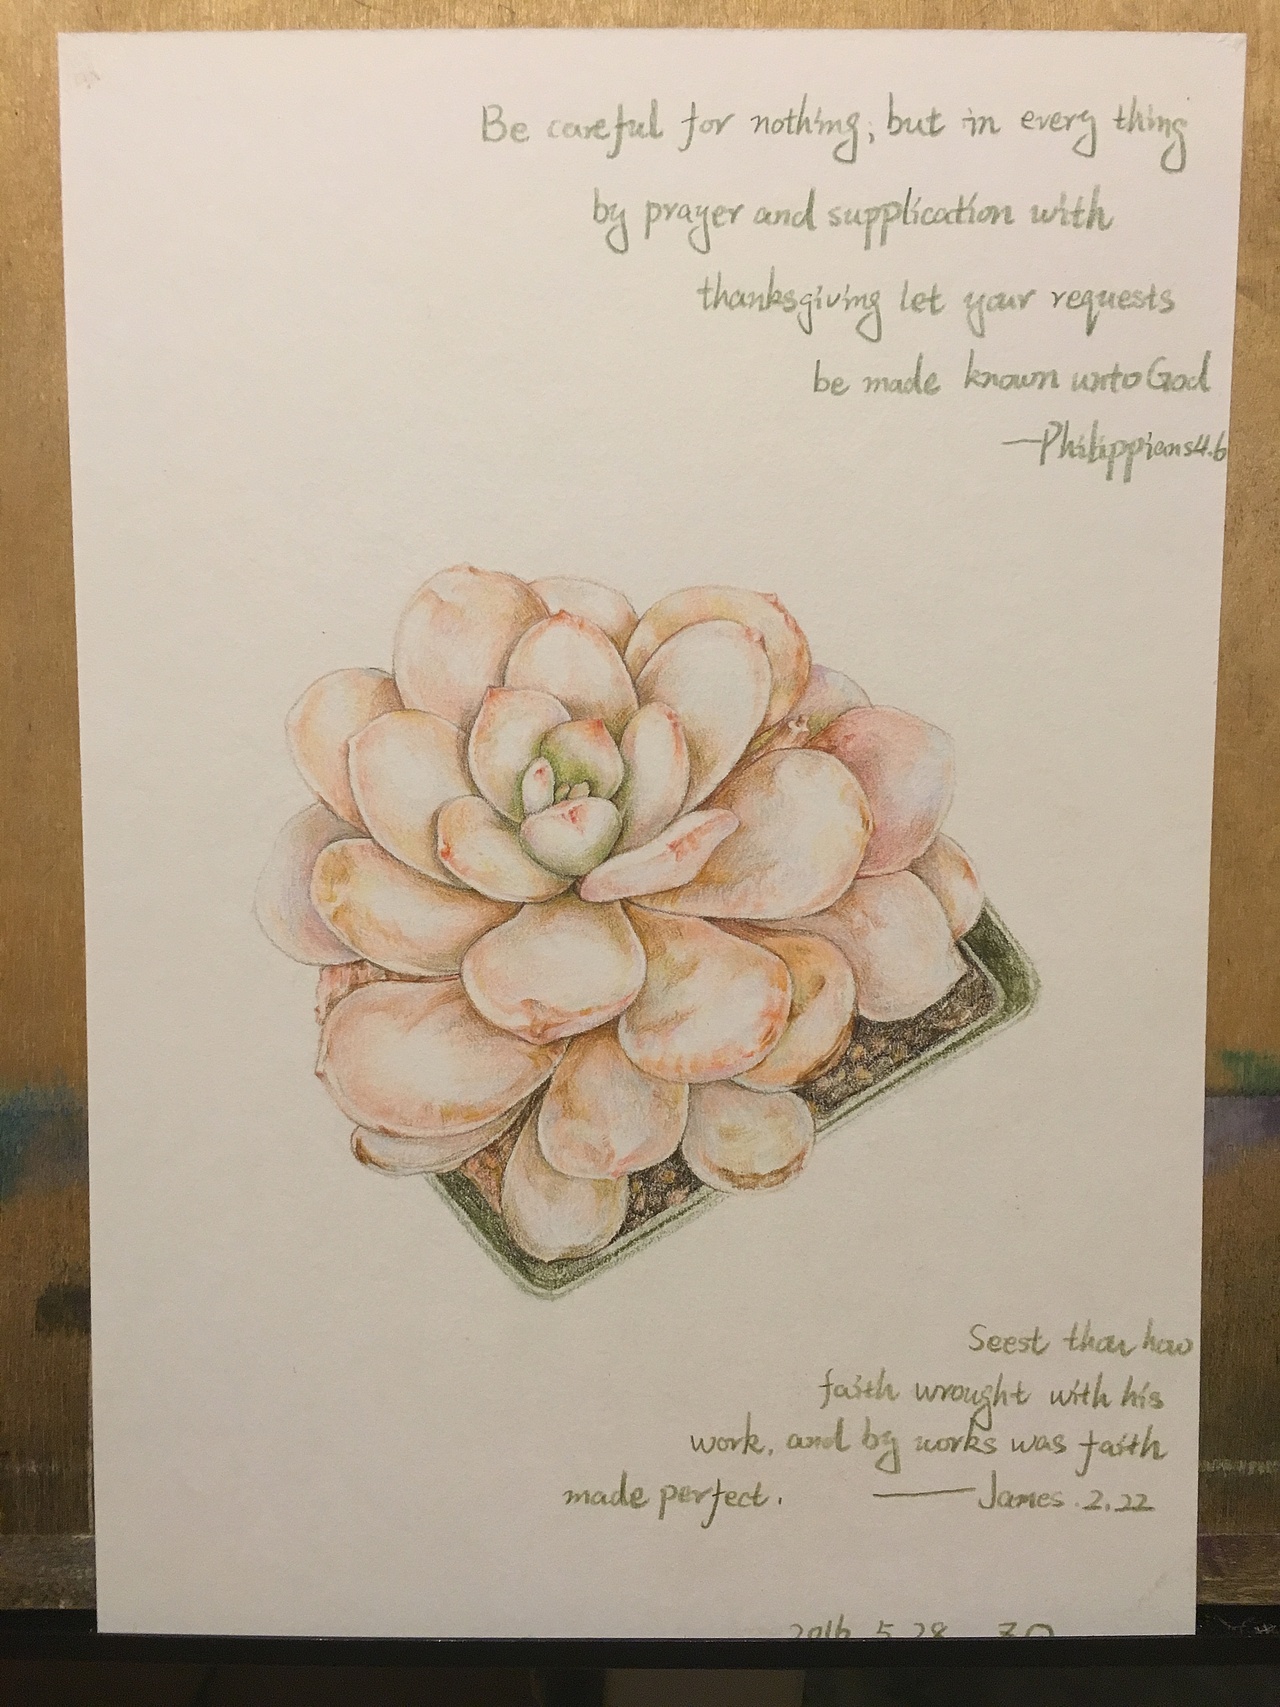 Be careful for nothing; but in every thing
by prayer and supplication with
thanksgiving let your requests
be made known unto God
—Philippians4.6
Seest thou how
faith wrought with his
work, and by works was faith
made perfect. ——James.2.22
2016 5.28